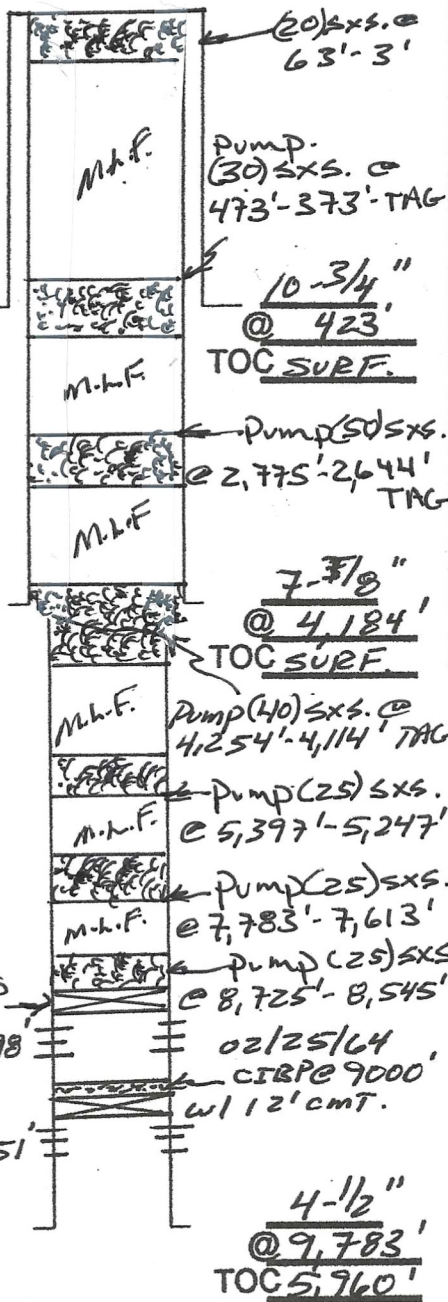 (20) sxs. @
63'-3'
M.L.F.
Pump.
(30) sxs. @
473'-373'-TAG
10-3/4"
@ 423'
TOC SURF.
M.L.F.
Pump (50) sxs.
@ 2,775'-2,644'
TAG
M.L.F
7-5/8"
@ 4,184'
TOC SURF.
M.L.F.
Pump (40) sxs. @
4,254'-4,114' TAG
Pump (25) sxs.
@ 5,397'-5,247'
M.L.F.
Pump (25) sxs.
@ 7,783'-7,613'
M.L.F.
Pump (25) sxs
@ 8,725'-8,545'
02/25/64
CIBP@ 9000'
w/ 12' cmT.
4-1/2"
@ 9,783'
TOC 5,960'